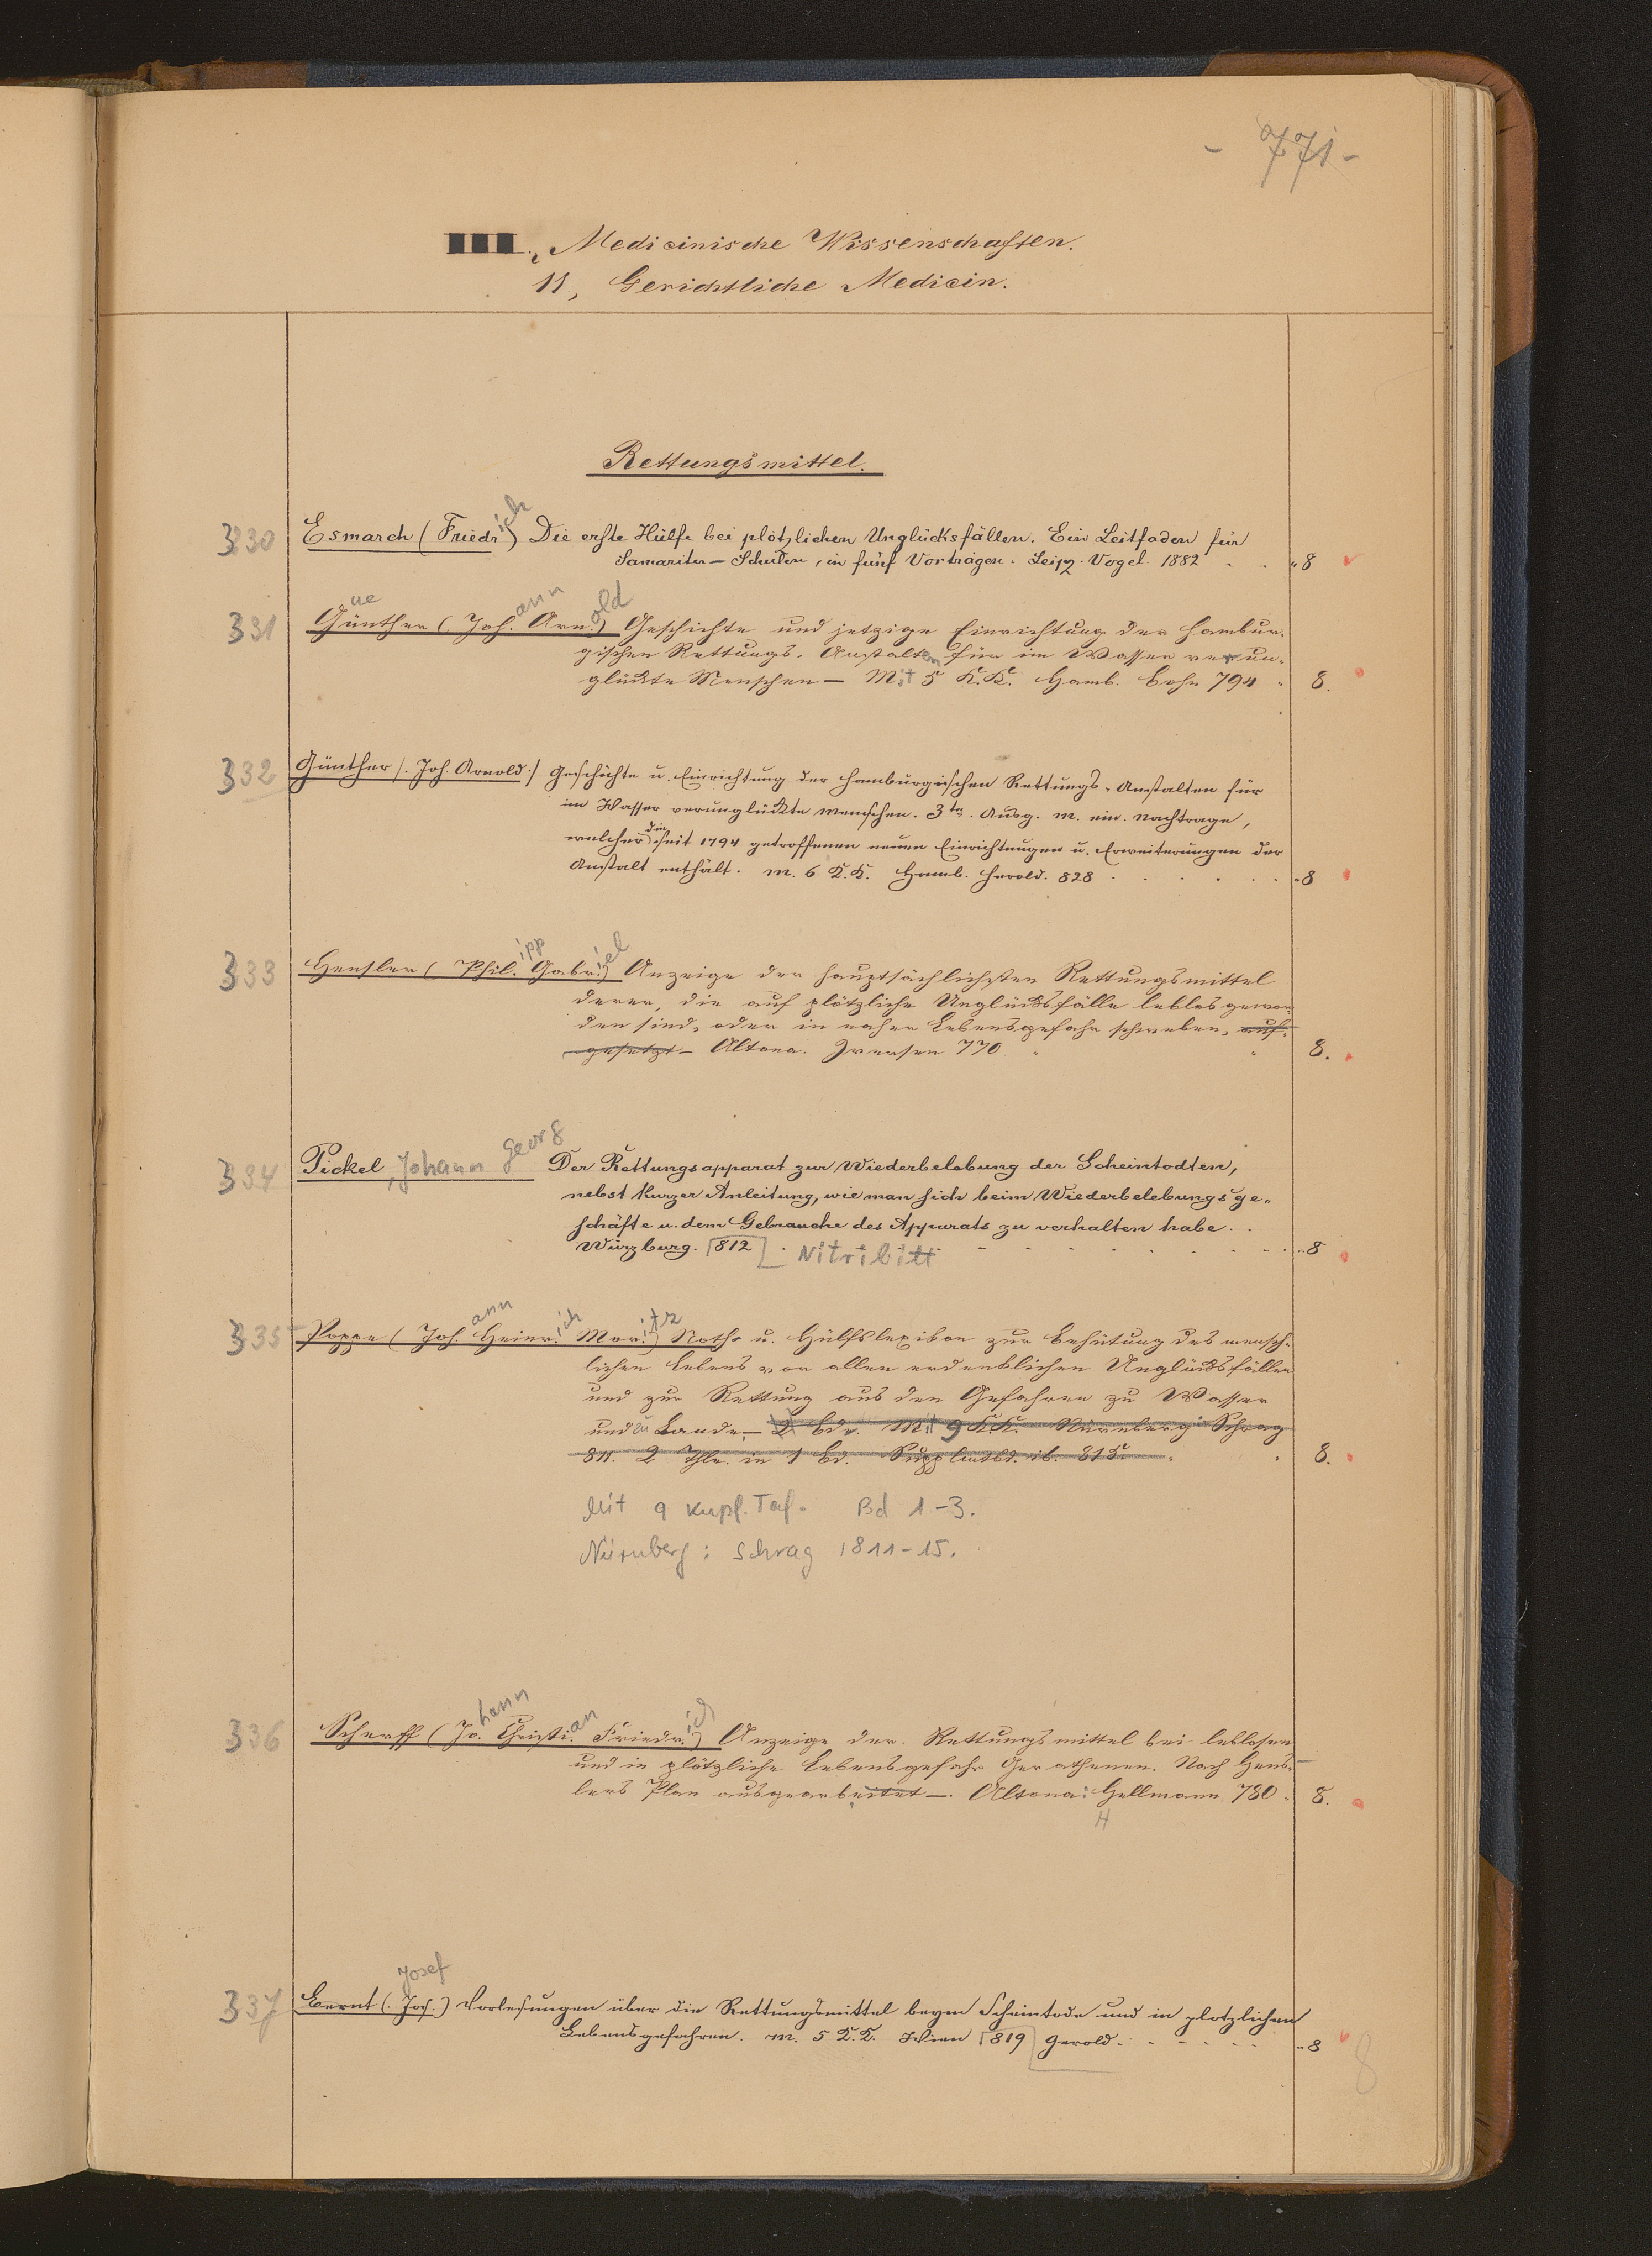 - 771 -
Medicinische Wissenschaften.
11, Gerichtliche Medicin.
Rettungsmittel.
330 Esmarch (Friedrich) Die erste Hülfe bei plötzlichen Unglücksfällen. Ein Leitfaden für
Samariter-Schulen, in fünf Vorträgen. Leipz. Vogel. 1882 . . "8
331 Günther (Johann Arnold) Geschichte und jetzige Einrichtung der hambur-
gischen Rettungs-Anstalten für im Wasser verun-
glückte Menschen - Mit 5 K.K. Hamb. Bohn 794 . 8.
332 Günther /. Joh. Arnold ./ Geschichte u. Einrichtung der hamburgischen Rettungs-Anstalten für
im Wasser verunglückte Menschen. 3te. Ausg. m. ein. Nachtrage,
welcher die seit 1794 getroffenen neuen Einrichtungen u. Erweiterungen der
Anstalt enthält. m. 6 K.K. Hamb. Herold. 828 . . . . . . "8
333 Hensler (Philipp Gabriel) Anzeige der hauptsächlichsten Rettungsmittel
derer, die auf plötzliche Unglücksfälle leblos gewor-
den sind, oder in naher Lebensgefahr schweben, auf-
gesetzt - Altona. Iversen 770 8.
334 Pickel, Johann Georg Der Rettungsapparat zur Wiederbelebung der Scheintodten,
nebst kurzer Anleitung, wie man sich beim Wiederbelebungsge-
schäfte u. dem Gebrauche des Apparats zu verhalten habe. .
Würzburg. 1812 Nitribitt "8
335 Poppe (Johann Heinrich Moritz) Noth- u. Hülfslexikon zur Behütung des mensch-
lichen Lebens vor allen erdenklichen Unglücksfällen
und zur Rettung aus den Gefahren zu Wasser
und zu Lande, - 2 Bde. Mit 9 K.K. Nürnberg: Schrag
811. 2 Thle. in 1 Bd. Supplmtbd. ib. 815. 8.
Mit 9 Kupf. Taf. Bd 1-3.
Nürnberg: Schrag 1811-15.
336 Scherff (Johann Christian Friedrich) Anzeige der Rettungsmittel bei leblosen
und in plötzliche Lebensgefahr Gerathenen. Nach Hens-
lers Plan ausgearbeitet -. Altona: Hellmann 780. 8.
H
337 Bernt (Josef) Vorlesungen über die Rettungsmittel beym Scheintode und in plötzlichen
Lebensgefahren. m. 5 K.K. Wien 1819 Gerold. . . . . . "8
8